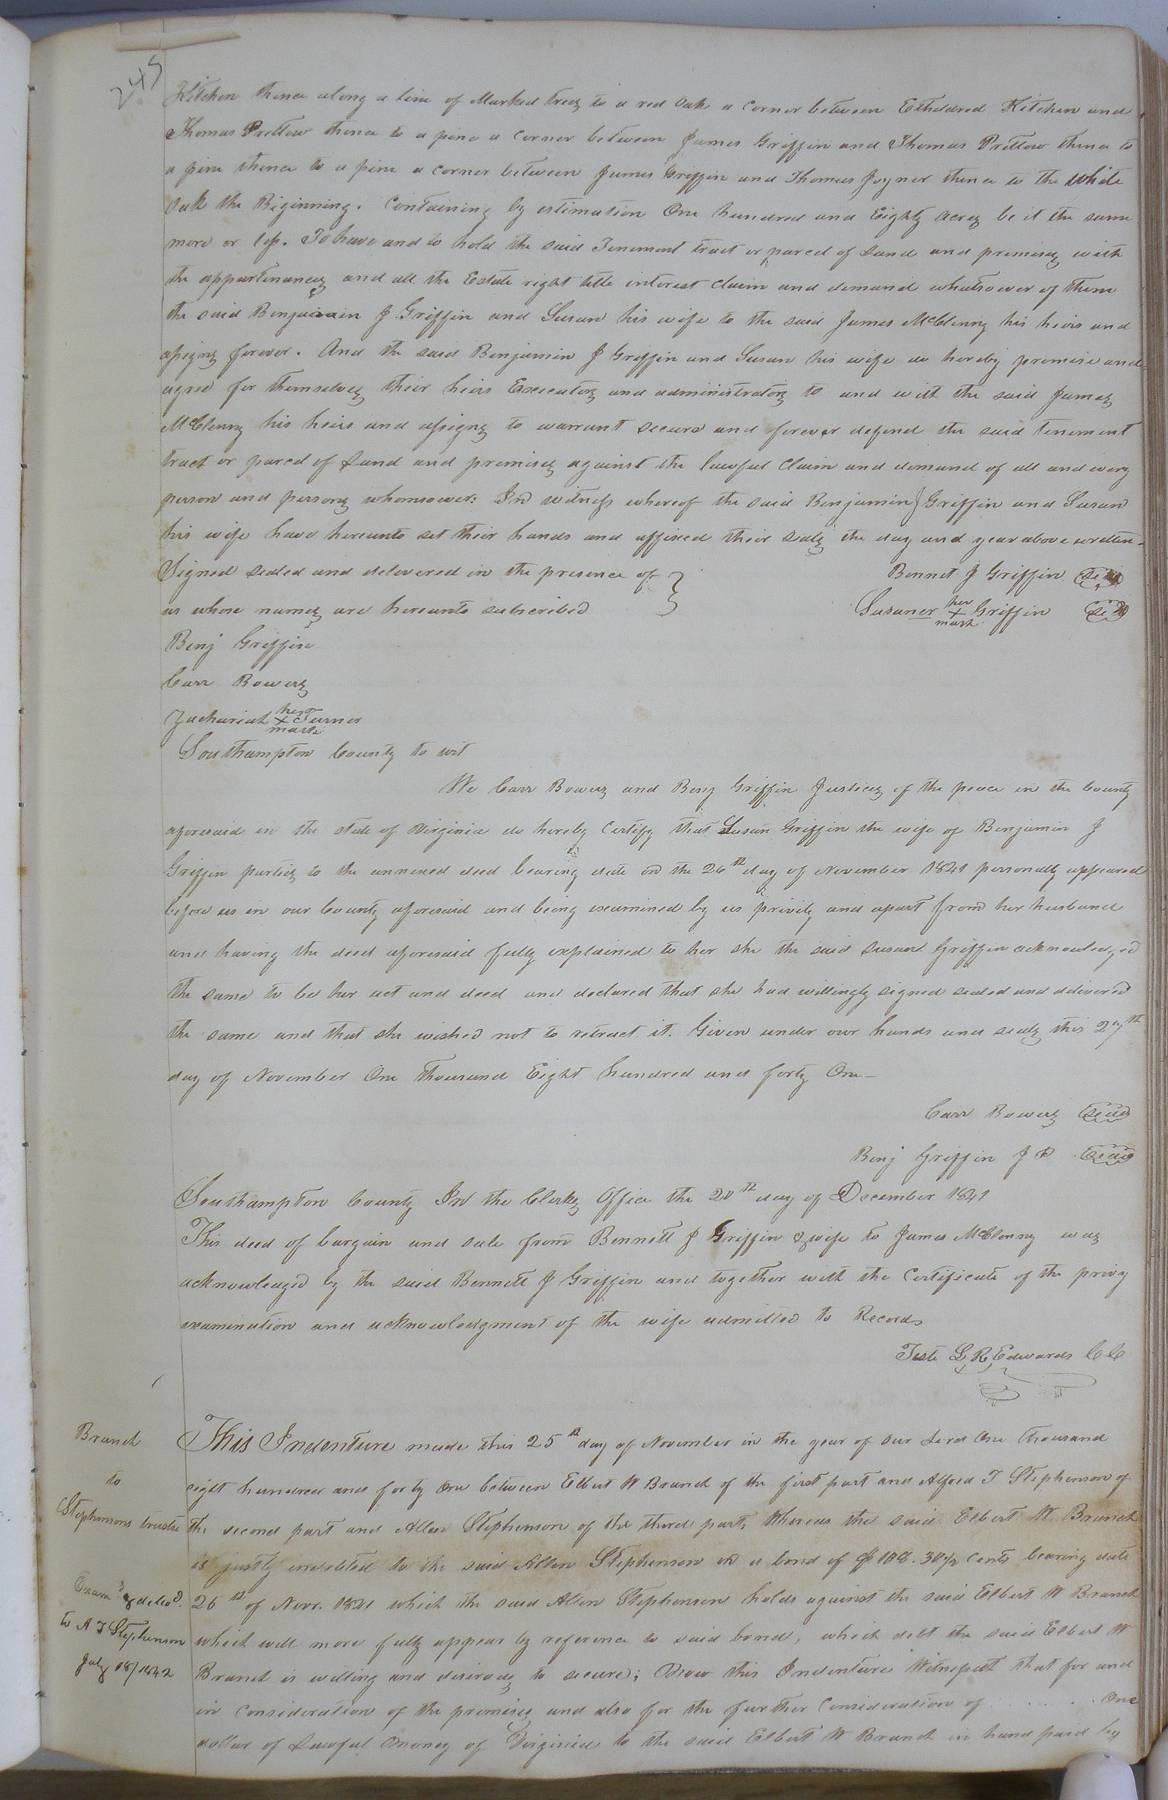 245
Kitchen thence along a line of Marked trees to a red Oak a corner between Etheldred Kitchen and
Thomas Pretlow thence to a pine a corner between James Griffin and Thomas Pretlow thence to
a pine thence to a pine a corner between James Griffin and Thomas Joyner thence to the White
Oak the Beginning. Containing by estimation One hundred and Eighty acres be it the same
more or less. To have and to hold the said Tenement tract or parcel of Land and premises with
the appurtenances and all the Estate right title interest Claim and demand whatsoever of them
the said Benjamin J Griffin and Susan his wife to the said James McClenny his heirs and
assigns forever. And the said Benjamin J Griffin and Susan his wife do hereby promise and
agree for themselves their heirs Executors and administrators to and with the said James
McClenny his heirs and assigns to warrant secure and forever defend the said tenement
tract or parcel of Land and premises against the lawful Claim and demand of all and every
person and persons whomsoever: In witness whereof the said Benjamin J Griffin and Susan
his wife have hereunto set their hands and affixed their seals the day and year above written.
Signed sealed and delivered in the presence of } Bennet J Griffin Seal
us whose names are hereunto subscribed Susaner her + mark Griffin Seal
Benj Griffin
Carr Bowers
Zachariah his + mark Turner
Southampton County to wit
We Carr Bowers and Benj Griffin Justices of the peace in the County
aforesaid in the state of Virginia do hereby Certify that Susan Griffin the wife of Benjamin J
Griffin parties to the annexed deed bearing date on the 26th day of November 1841 personally appeared
before us in our County aforesaid and being examined by us privily and apart from her husband
and having the deed aforesaid fully explained to her she the said Susan Griffin acknowledged
the same to be her act and deed and declared that she had willingly signed sealed and delivered
the same and that she wished not to retract it. Given under our hands and seals this 27th
day of November One Thousand Eight hundred and forty One
Carr Bowers Seal
Benj Griffin J P Seal
Southampton County In the Clerks Office the 20th day of December 1841
This deed of bargain and sale from Bennett J Griffin & wife to James McClenny was
acknowledged by the said Bennett J Griffin and together with the Certificate of the privy
examination and acknowledgment of the wife admitted to Record
Teste L R Edwards C C
Branch
to
Stephensons trustee
Exam'd & deliv'd.
to A T Stephenson
July 18/1842
This Indenture made this 25th day of November in the year of our Lord One Thousand
eight hundred and forty one between Elbert W Branch of the first part and Alfred T Stephenson of
the second part and Allen Stephenson of the third part, Whereas the said Elbert W. Branch
is justly indebted to the said Allen Stephenson in a bond of $ 108. 30½ cents bearing date
26th of Novr. 1841 which the said Allen Stephenson holds against the said Elbert W Branch
which will more fully appear by reference to said bond, which debt the said Elbert W
Branch is willing and desirous to secure; Now this Indenture Witnesseth that for and
in consideration of the premises and also for the further Consideration of . . . . . . . One
dollar of Lawful money of Virginia to the said Elbert W Branch in hand paid by